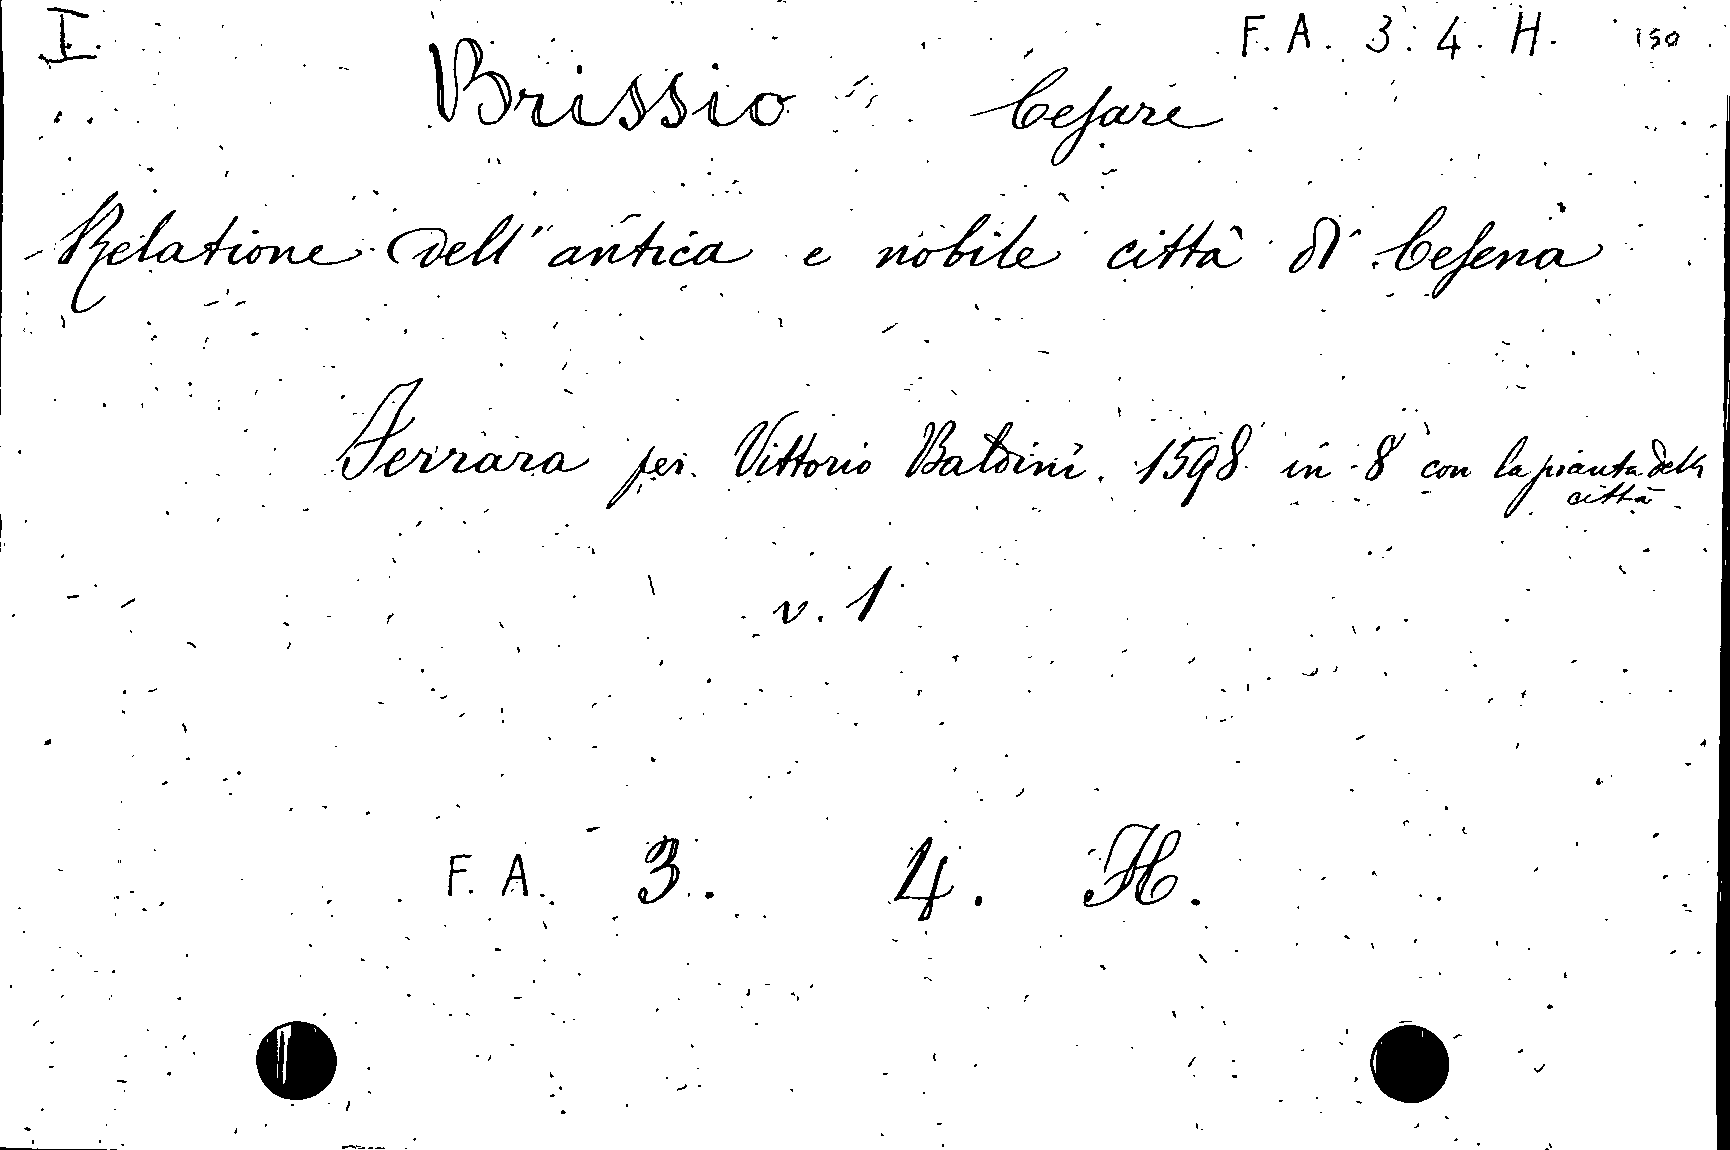 I. F. A. 3. 4. H. 150
Brissio Cesare
Relatione dell'antica e nobile città di Cesena
Ferrara per Vittorio Baldini. 1598 in 8 con la pianta della
città
v. 1
F. A. 3. 4. H.